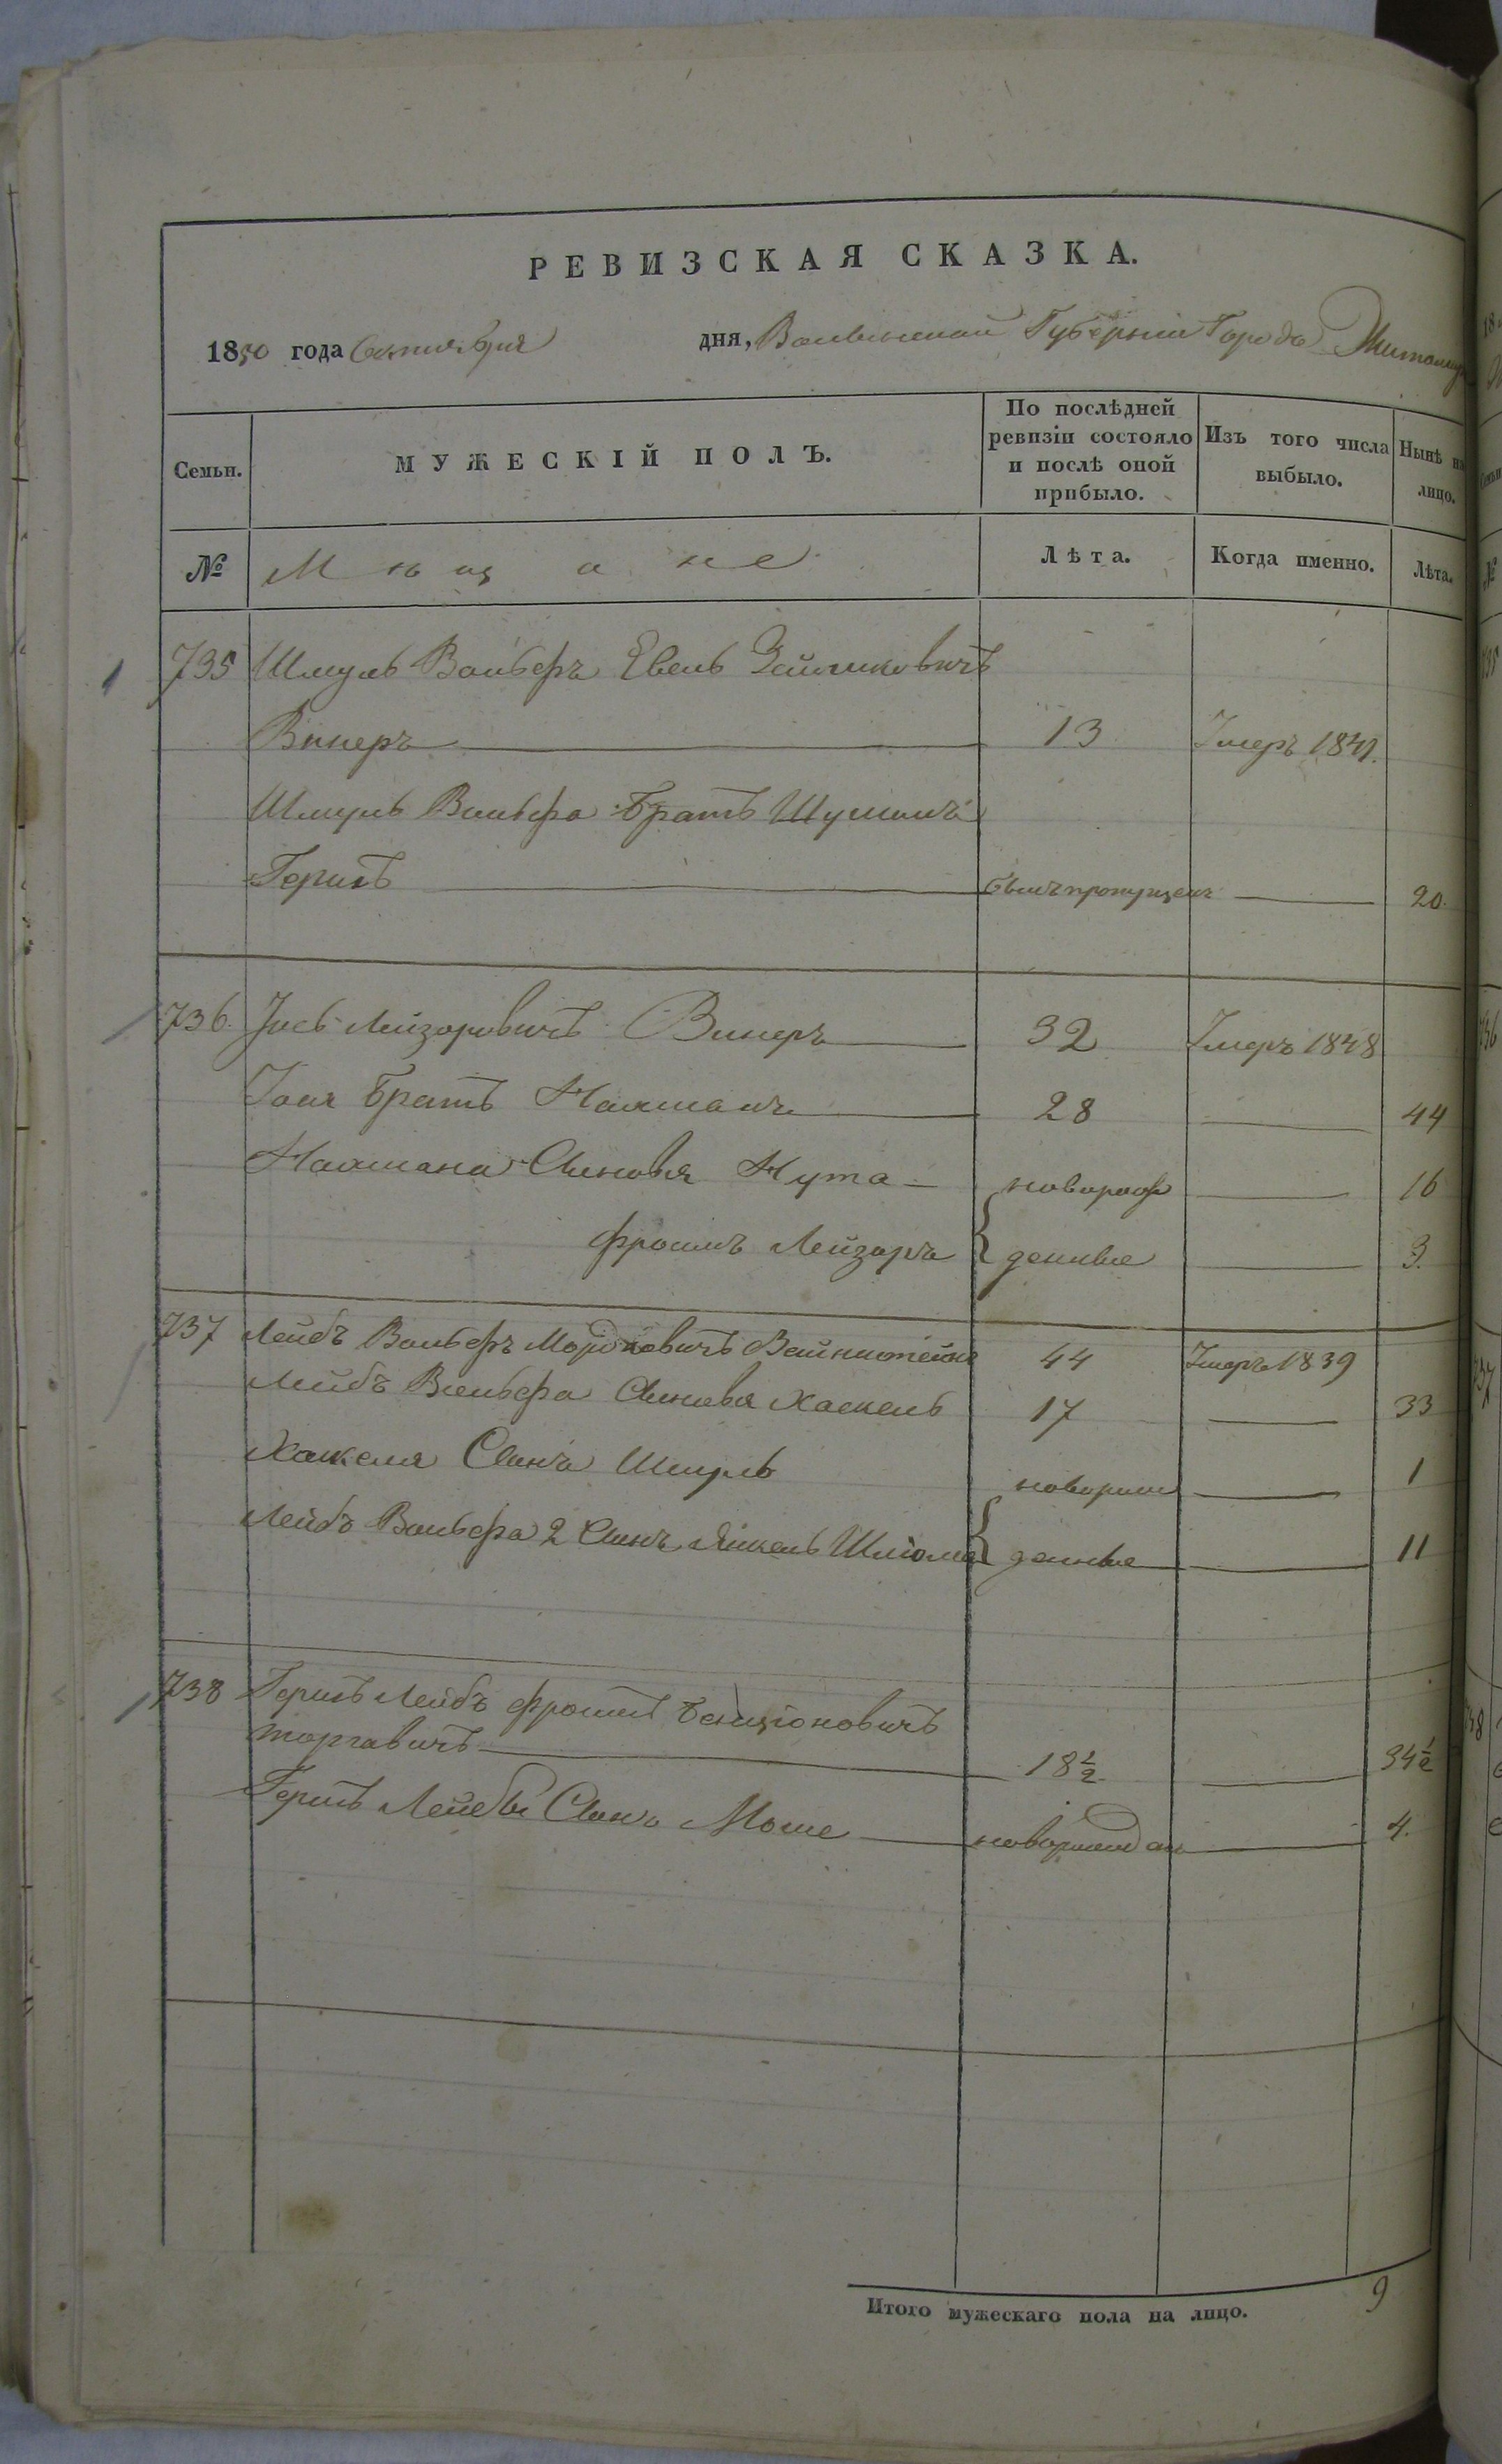 РЕВИЗСКАЯ СКАЗКА.
1850 года Октября дня, Волынской Губерніи Города Житомира
Семьи. МУЖЕСКІЙ ПОЛЪ. По послѣдней ревизіи состояло и послѣ оной прибыло. Изъ того числа выбыло. Нынѣ на лицо.
№ Мѣщане Лѣта. Когда именно. Лѣта.
735 Шмуль Вольфъ Евель Зейликовичъ
Винеръ 13 Умеръ 1841.
Шмуль Вольфа братъ
Гершъ былъ пропущенъ 20.
736. Іось Лейзоровичъ Винеръ 32 Умеръ 1848
Іося братъ Нахманъ 28 44
Нахмана Сыновья Нута новорож 16
Фроимъ Лейзоръ денные 3.
737 Лейбъ Вольфъ Мордковичъ Вайнштейнъ 44 Умеръ 1839
Лейбъ Вольфа Сыновья Хаскель 17 33
Хаскеля Сынъ Шмуль новорож 1
Лейбъ Вольфа 2 Сынъ Янкель Шліома денные 11
738 Гершъ Лейбъ Фроимъ Бенціоновичъ
Торговичъ 18½ 34½
Гершъ Лейбы Сынъ Моше новорожден 4.
Итого мужескаго пола на лицо. 9